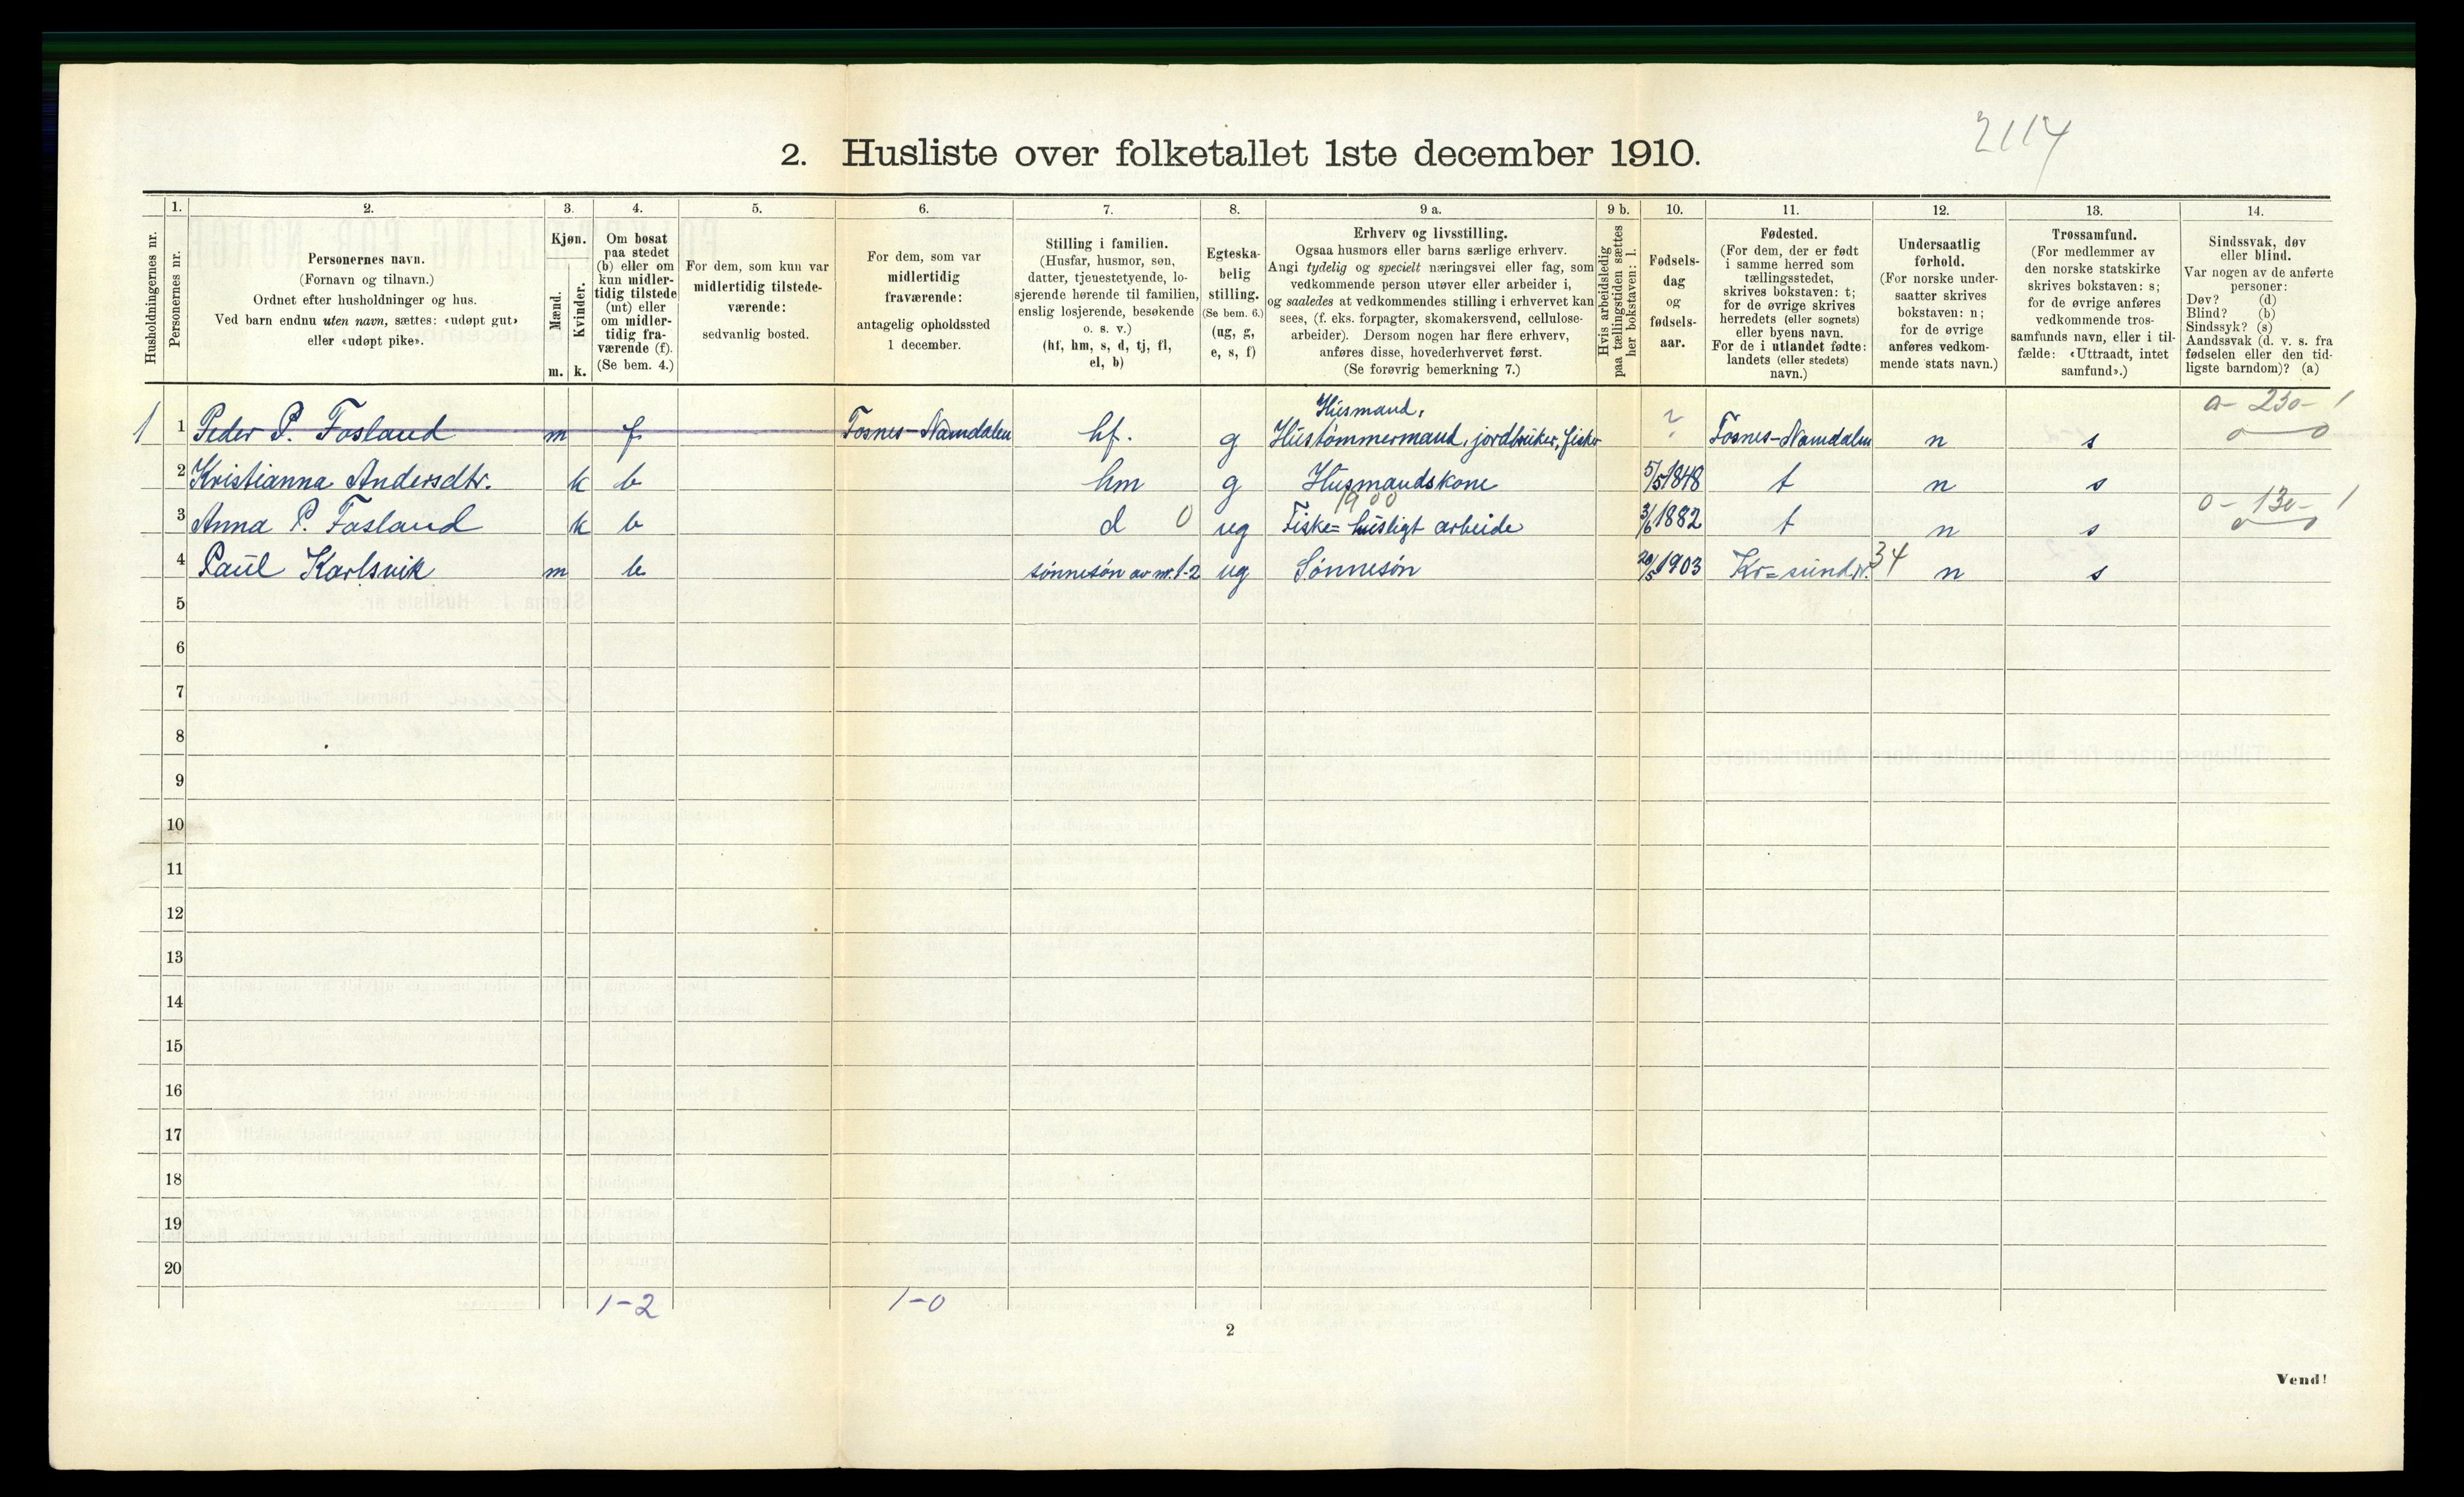 2114
2. Husliste over folketallet 1ste december 1910.
Husholdningernes nr.
1.
Personernes nr.
2.
Personernes navn.
(Fornavn og tilnavn.)
Ordnet efter husholdninger og hus.
Ved barn endnu uten navn, sættes: «udøpt gut»
eller «udøpt pike».
3.
Kjøn.
Mænd.
Kvinder.
m. k.
4.
Om bosat
paa stedet
(b) eller om
kun midler-
tidig tilstede
(mt) eller
om midler-
tidig fra-
værende (f).
(Se bem. 4.)
5.
For dem, som kun var
midlertidig tilstede-
værende:
sedvanlig bosted.
6.
For dem, som var
midlertidig
fraværende:
antagelig opholdssted
1 december.
7.
Stilling i familien.
(Husfar, husmor, søn,
datter, tjenestetyende, lo-
sjerende hørende til familien,
enslig losjerende, besøkende
o. s. v.)
(hf, hm, s, d, tj, fl,
el, b)
8.
Egteska-
belig
stilling.
(Se bem. 6.)
(ug, g,
e, s, f)
9 a.
Erhverv og livsstilling.
Ogsaa husmors eller barns særlige erhverv.
Angi tydelig og specielt næringsvei eller fag, som
vedkommende person utøver eller arbeider i,
og saaledes at vedkommendes stilling i erhvervet kan
sees, (f. eks. forpagter, skomakersvend, cellulose-
arbeider). Dersom nogen har flere erhverv,
anføres disse, hovederhvervet først.
(Se forøvrig bemerkning 7.)
9 b.
Hvis arbeidsledig
paa tællingstiden sættes
her bokstaven: l.
10.
Fødsels-
dag
og
fødsels-
aar.
11.
Fødested.
(For dem, der er født
i samme herred som
tællingsstedet,
skrives bokstaven: t;
for de øvrige skrives
herredets (eller sognets)
eller byens navn.
For de i utlandet fødte:
landets (eller stedets)
navn.)
12.
Undersaatlig
forhold.
(For norske under-
saatter skrives
bokstaven: n;
for de øvrige
anføres vedkom-
mende stats navn.)
13.
Trossamfund.
(For medlemmer av
den norske statskirke
skrives bokstaven: s;
for de øvrige anføres
vedkommende tros-
samfunds navn, eller i til-
fælde: «Uttraadt, intet
samfund».)
14.
Sindssvak, døv
eller blind.
Var nogen av de anførte
personer:
Døv? (d)
Blind? (b)
Sindssyk? (s)
Aandssvak (d. v. s. fra
fødselen eller den tid-
ligste barndom)? (a)
Husmand, 0-230-1
1 1 Peder P. Fosland m f Fosnes-Namdalen hf. g Hustømmermand, jordbruker, fisker ? Fosnes-Namdalen n s
2 Kristianna Andersdtr. k b hm g Husmandskone 5/5 1848 t n s
1900 0-130-1
3 Anna P. Fosland k b d 0 ug Fiske= husligt arbeide 3/6 1882 t n s
4 Paul Karlsvik m b sønnesøn av nr. 1-2 ug Sønnesøn 20/5 1903 Kr=sund N. 34 n s
5
6
7
8
9
10
11
12
13
14
15
16
17
18
19
20
1-2 1-0
2
Vend!